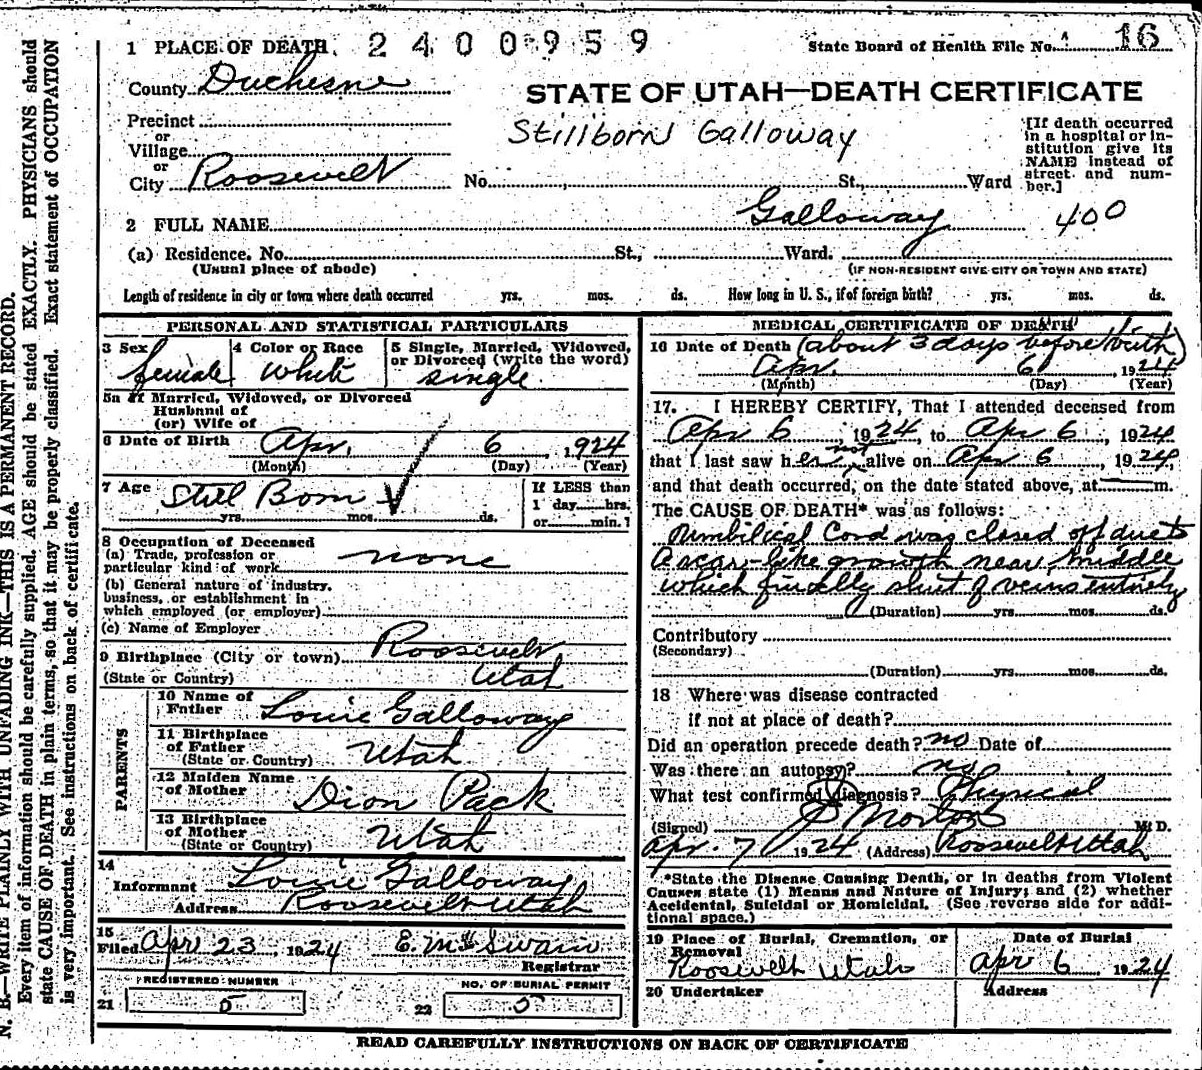 1 PLACE OF DEATH. 2400959 State Board of Health File No. 16
County Duchesne
STATE OF UTAH—DEATH CERTIFICATE
Precinct
or
Village
or
City Roosevelt No. , St., Ward
Stillborn Galloway
[If death occurred
in a hospital or in-
stitution give its
NAME instead of
street and num-
ber.]
2 FULL NAME Galloway 400
(a) Residence. No. St., Ward.
(Usual place of abode) (IF NON-RESIDENT GIVE CITY OR TOWN AND STATE)
Length of residence in city or town where death occurred yrs. mos. ds. How long in U. S., if of foreign birth? yrs. mos. ds.
PERSONAL AND STATISTICAL PARTICULARS
3 Sex female 4 Color or Race White 5 Single, Married, Widowed,
or Divorced (write the word)
single
5a If Married, Widowed, or Divorced
Husband of
(or) Wife of
6 Date of Birth Apr. 6, 1924
(Month) (Day) (Year)
7 Age Still Born
yrs. mos. ds.
If LESS than
1 day hrs.
or min. ?
8 Occupation of Deceased
(a) Trade, profession or
particular kind of work none
(b) General nature of industry,
business, or establishment in
which employed (or employer)
(c) Name of Employer
9 Birthplace (City or town) Roosevelt
(State or Country) Utah
PARENTS
10 Name of
Father Louie Galloway
11 Birthplace
of Father
(State or Country) Utah
12 Maiden Name
of Mother Dion Pack
13 Birthplace
of Mother
(State or Country) Utah
14
Informant Louie Galloway
Address Roosevelt Utah
15
Filed Apr 23 1924 E. M. Swain
Registrar
REGISTERED NUMBER NO. OF BURIAL PERMIT
21 5 22 5
MEDICAL CERTIFICATE OF DEATH
16 Date of Death (about 3 days before birth)
Apr. 6, 1924
(Month) (Day) (Year)
17. I HEREBY CERTIFY, That I attended deceased from
Apr 6, 1924, to Apr 6, 1924
that I last saw her not alive on Apr 6, 1924,
and that death occurred, on the date stated above, at m.
The CAUSE OF DEATH* was as follows:
Umbilical Cord was closed off due to
a scar-like growth near middle
which finally shut off veins entirely
(Duration) yrs. mos. ds.
Contributory
(Secondary)
(Duration) yrs. mos. ds.
18 Where was disease contracted
if not at place of death?
Did an operation precede death? no Date of
Was there an autopsy? no
What test confirmed diagnosis? Physical
(Signed) J Morton M. D.
apr. 7 1924 (Address) Roosevelt Utah
*State the Disease Causing Death, or in deaths from Violent
Causes state (1) Means and Nature of Injury; and (2) whether
Accidental, Suicidal or Homicidal. (See reverse side for addi-
tional space.)
19 Place of Burial, Cremation, or
Removal
Roosevelt Utah
Date of Burial
Apr 6 1924
20 Undertaker Address
READ CAREFULLY INSTRUCTIONS ON BACK OF CERTIFICATE
N. B.—WRITE PLAINLY WITH UNFADING INK—THIS IS A PERMANENT RECORD.
Every item of information should be carefully supplied. AGE should be stated EXACTLY. PHYSICIANS should
state CAUSE OF DEATH in plain terms, so that it may be properly classified. Exact statement of OCCUPATION
is very important. See instructions on back of certificate.